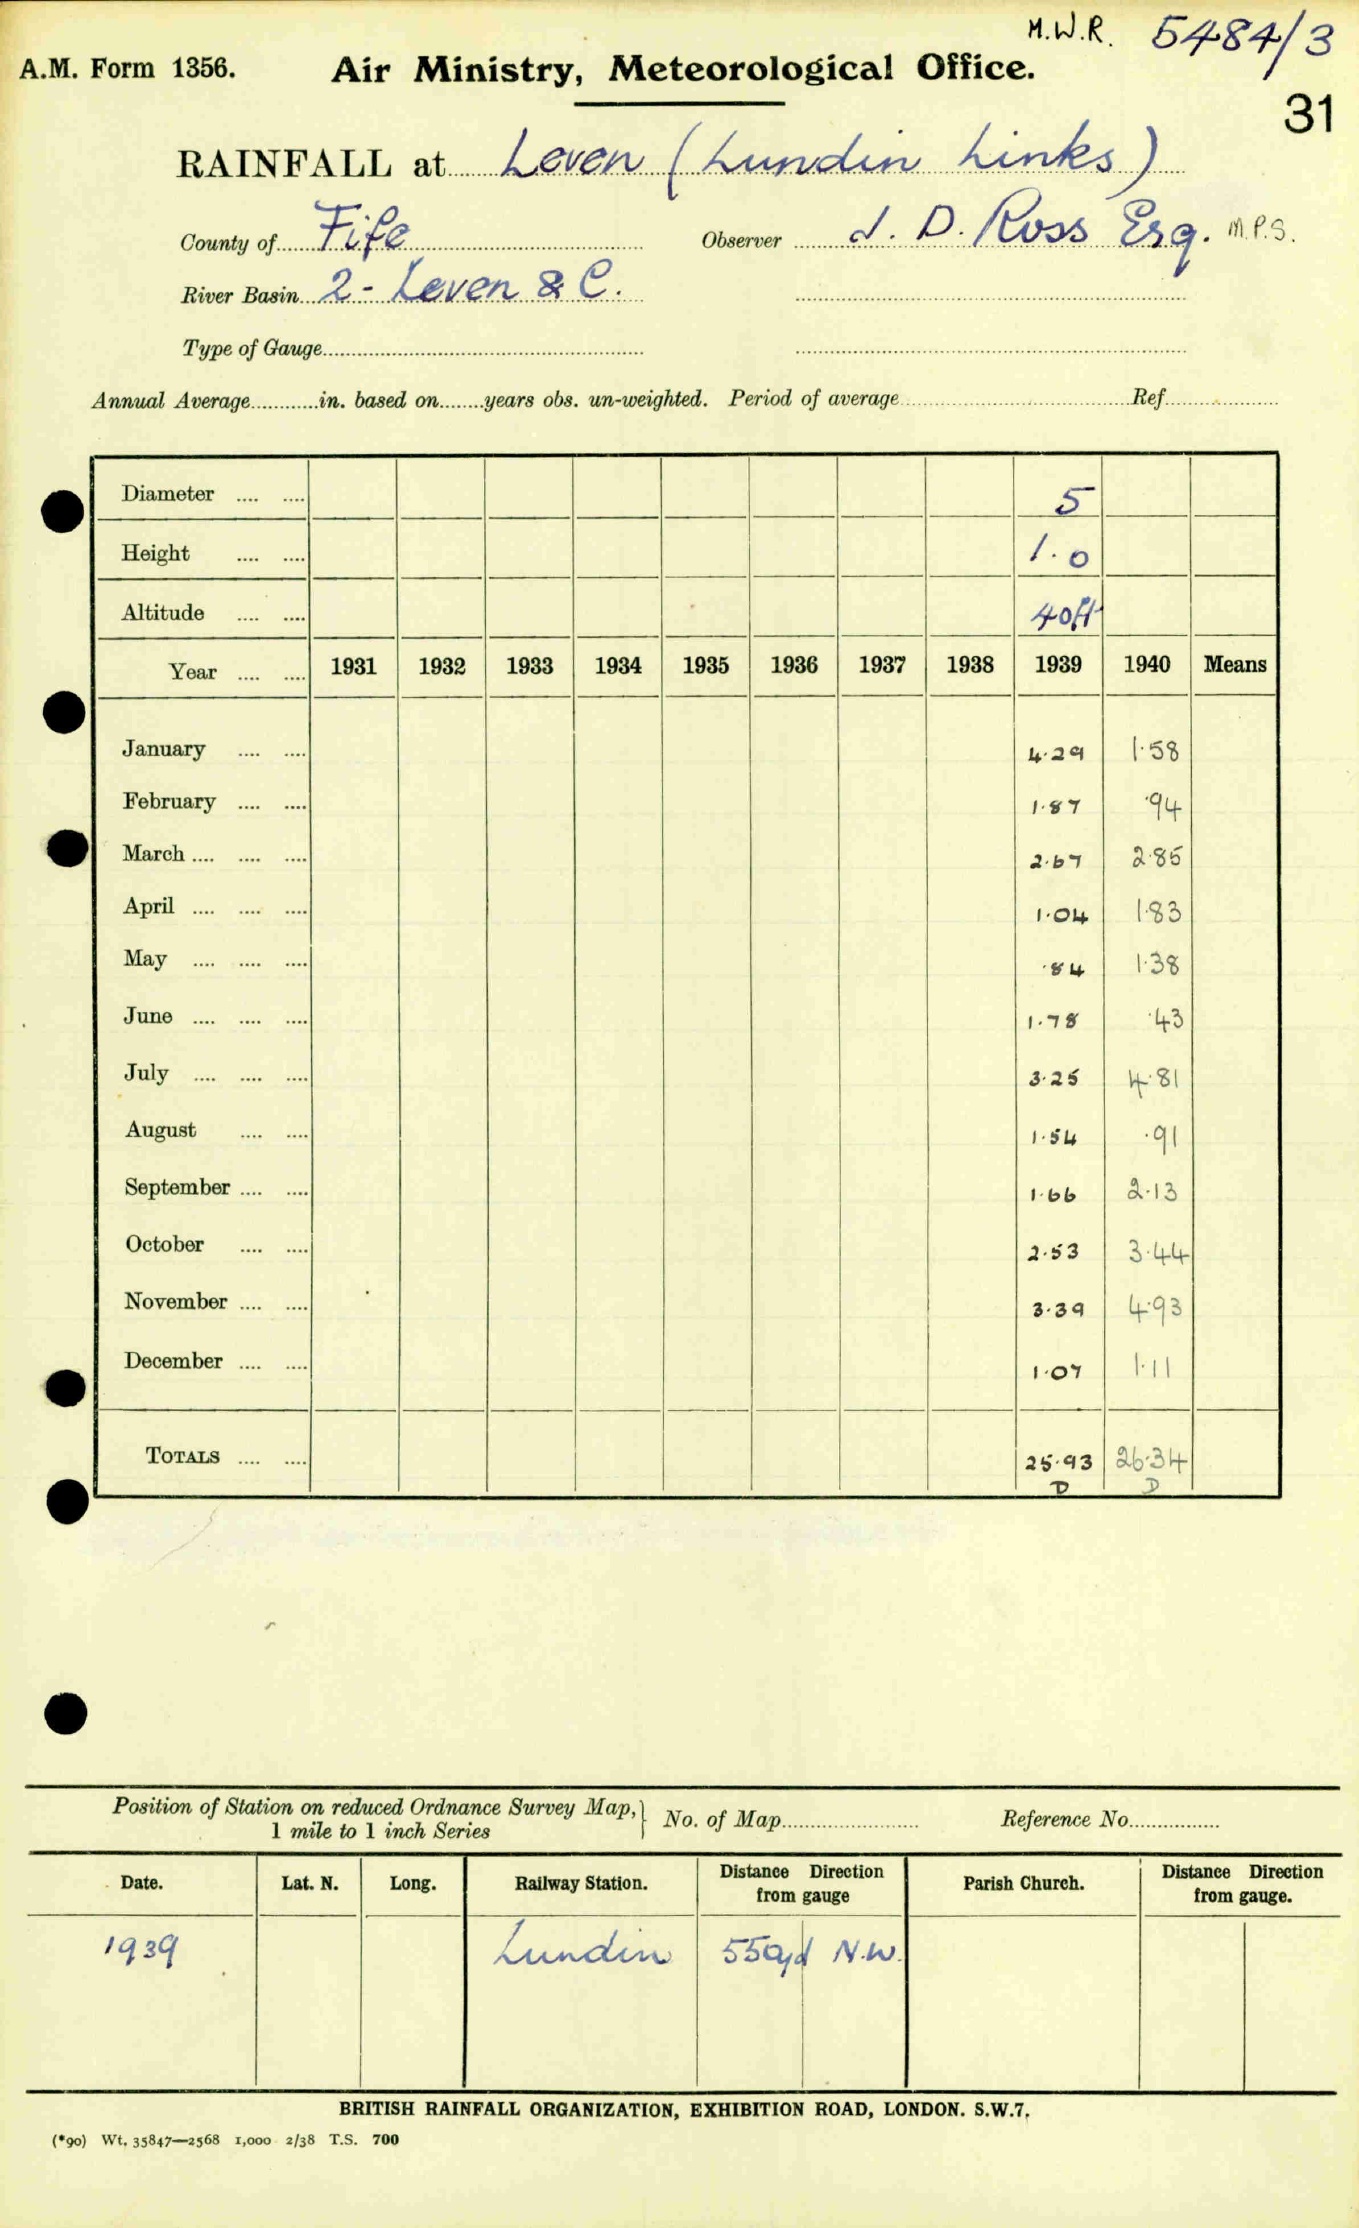 M.W.R. 5484/3
A.M. Form 1356. Air Ministry, Meteorological Office.
31
RAINFALL at Leven (Lundin Links)
County of Fife Observer J. D. Ross Esq. M.P.S.
River Basin 2 - Leven & C.
Type of Gauge
Annual Average in. based on years obs. un-weighted. Period of average Ref
Diameter 5
Height 1.0
Altitude 40ft
Year 1931 1932 1933 1934 1935 1936 1937 1938 1939 1940 Means
January 4.29 1.58
February 1.87 .94
March 2.67 2.85
April 1.04 1.83
May .84 1.38
June 1.78 .43
July 3.25 4.81
August 1.54 .91
September 1.66 2.13
October 2.53 3.44
November 3.39 4.93
December 1.07 1.11
TOTALS 25.93 26.34
D D
Position of Station on reduced Ordnance Survey Map, } No. of Map Reference No.
1 mile to 1 inch Series
Date. Lat. N. Long. Railway Station. Distance Direction from gauge Parish Church. Distance Direction from gauge.
1939 Lundin 550yd N.W.
BRITISH RAINFALL ORGANIZATION, EXHIBITION ROAD, LONDON. S.W.7.
(*90) Wt. 35847—2568 1,000 2/38 T.S. 700